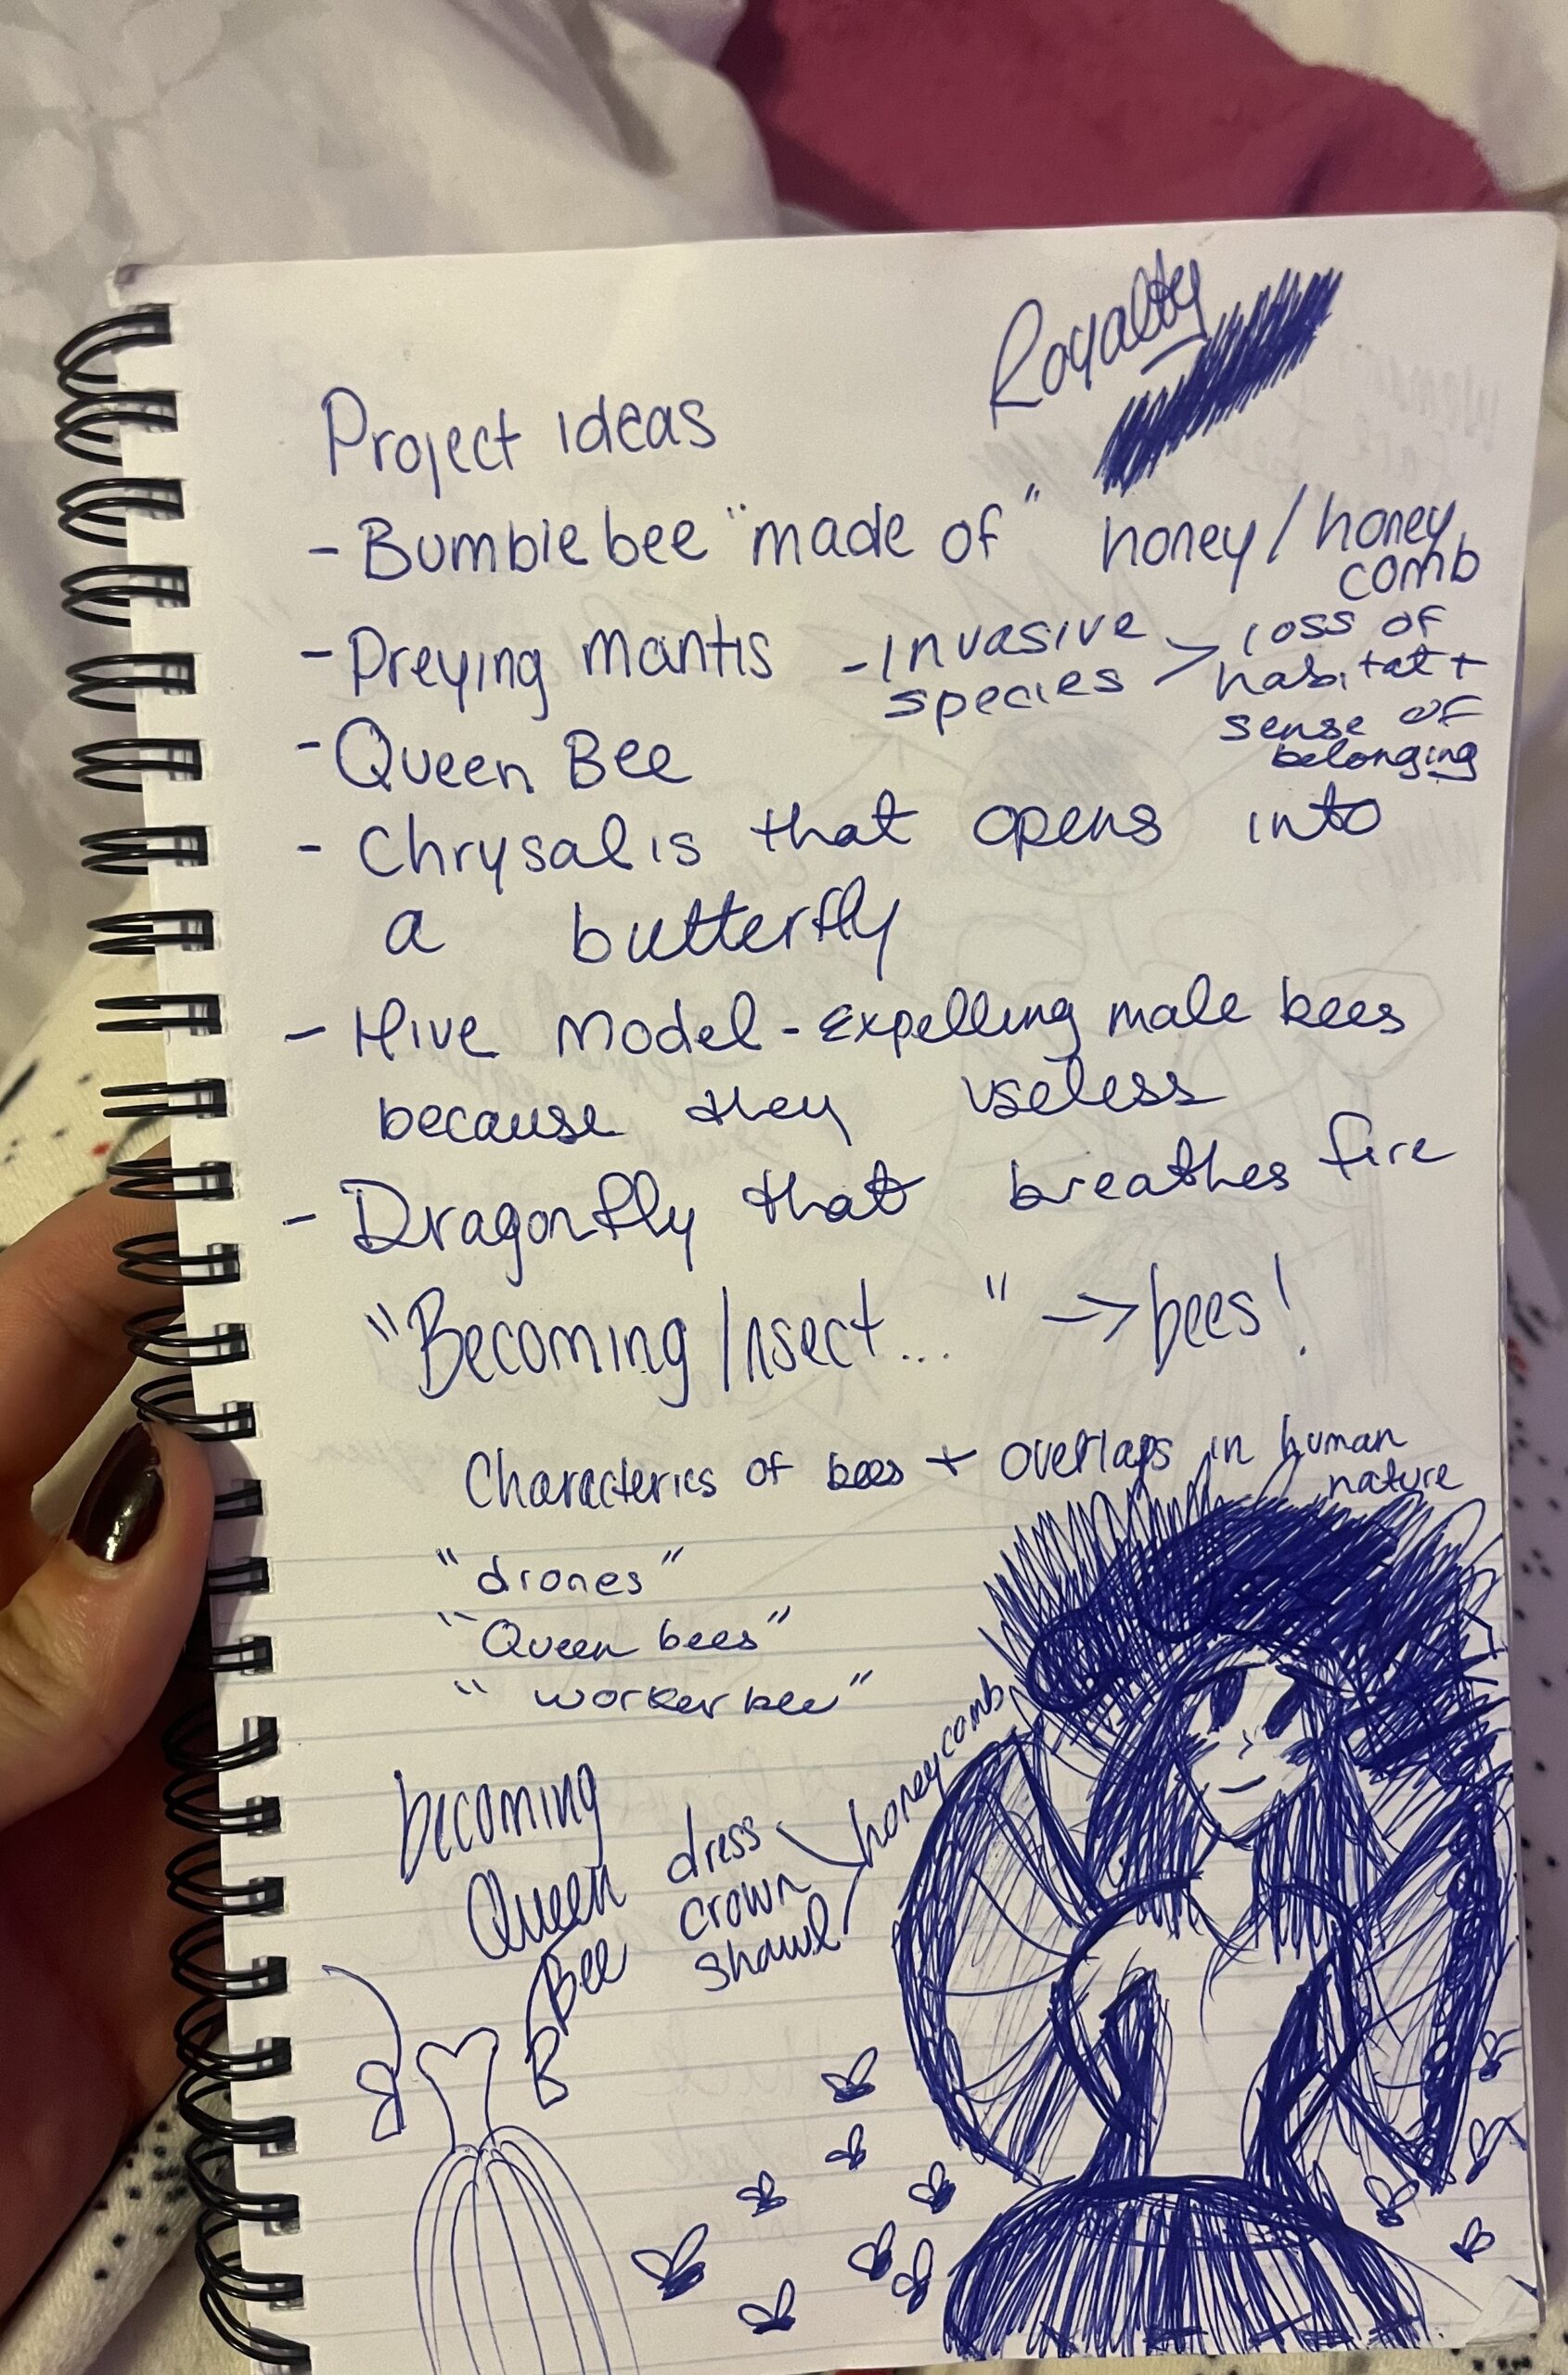 Royalty
Project ideas
- Bumble bee "made of" honey / honey
comb
- Preying Mantis - invasive
species > loss of
habitat +
sense of
belonging
- Queen Bee
- Chrysalis that opens into
a butterfly
- Hive Model - Expelling male bees
because they useless
- Dragonfly that breathes fire
"Becoming Insect... " -> bees!
Characterics of bees + overlaps in human
nature
"drones"
"Queen bees"
"worker bee"
becoming
Queen
Bee
dress
crown
shawl
honeycomb